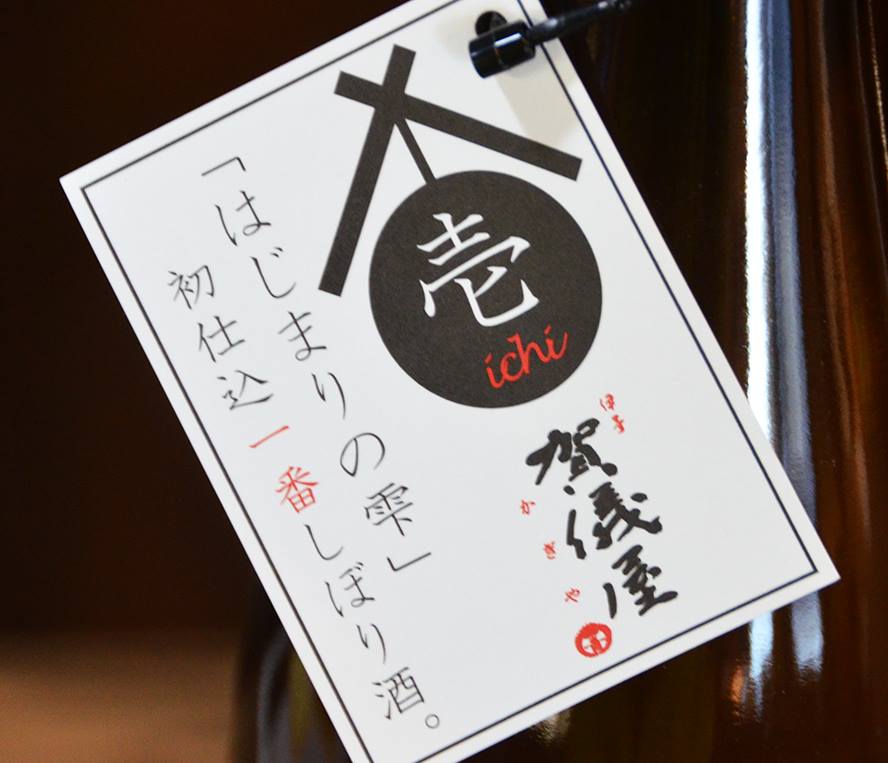 壱
ichi
伊予
賀儀屋
かぎや
「はじまりの雫」
初仕込一番しぼり酒。